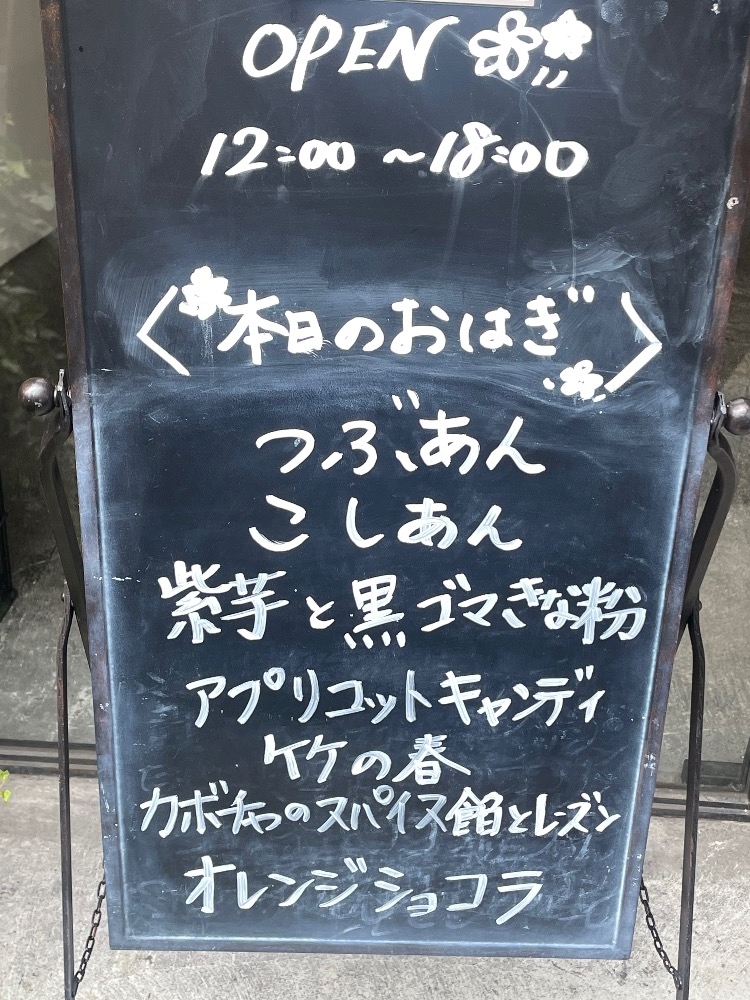 OPEN
12:00 ~18:00
〈本日のおはぎ〉
つぶあん
こしあん
紫芋と黒ゴマきな粉
アプリコットキャンディ
竹の春
カボチャのスパイス餡とレーズン
オレンジショコラ